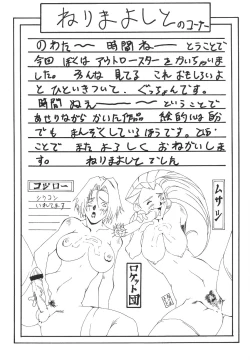 ねりまよしと のコーナー
のわた〜 時間ね〜 とうことで
今回 ぼくは アウトロースター をかいちゃいま
した。 みんな 見てる これ おもしろいよ
と ひといきついて、 ぐぅちゃんです。
時間 ぬぇ〜 ということで
あせりながら かいた作品 絵的には 自分
でも まんぞくしている ほうです。
ことで また よろしく おねがいしま
す。 ねりまよしと でしん
ムサシ
コジロー
シリコン
いれてます
ロケット団